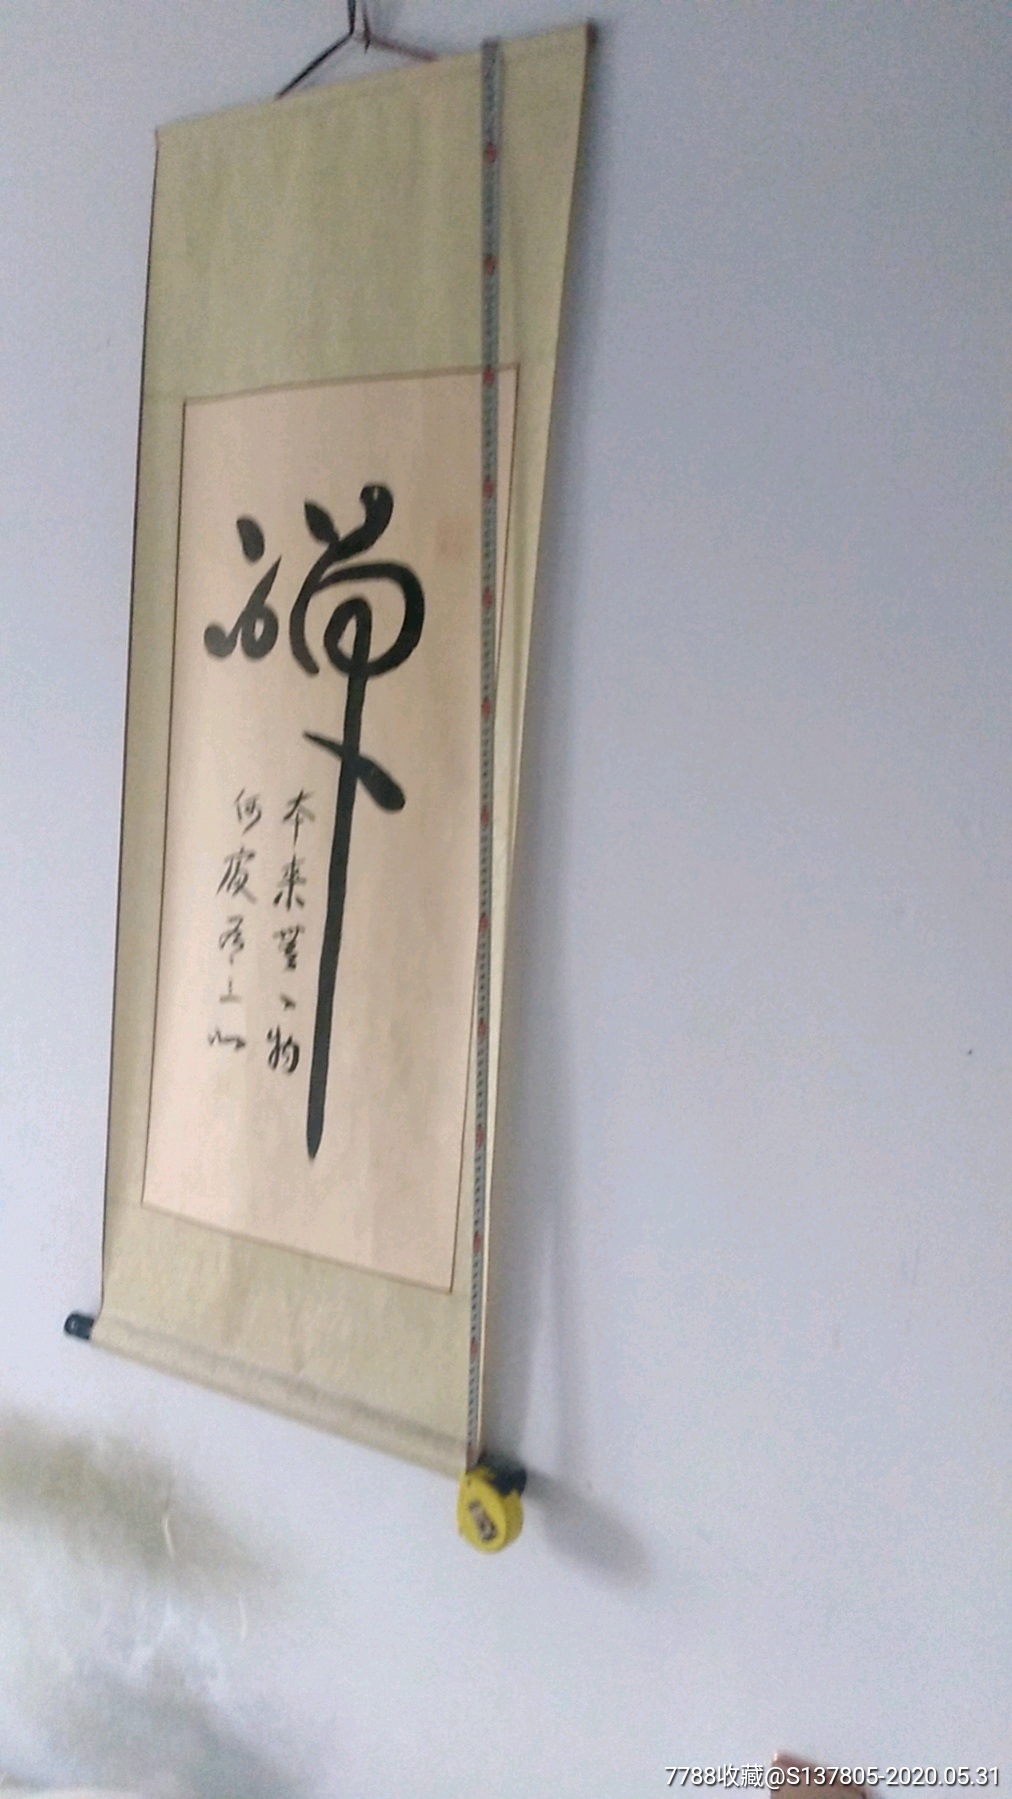 禪
本来無一物
何處
7788收藏@S137805-2020.05.31